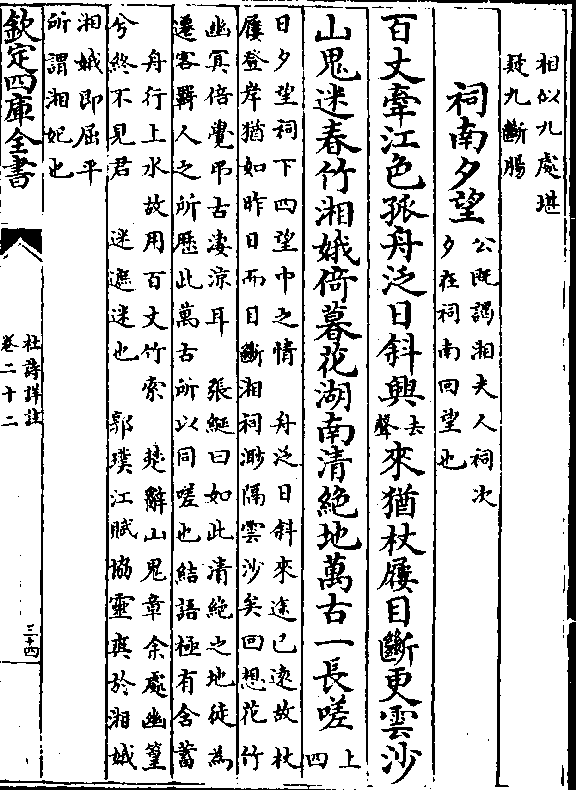 相似九處堪
疑九斷腸
祠南夕望
公既謁湘夫人祠次
夕在祠南回望也
百丈牽江色孤舟泛日斜興去聲來猶杖屨目斷更雲沙
山鬼迷春竹湘娥倚暮花湖南清絶地萬古一長嗟上四
日夕望祠下四望中之情 舟泛日斜來途已遠故杖
屨登岸猶如昨日而目斷湘祠渺隔雲沙矣回想花竹
幽冥倍覺弔古淒涼耳 張綖曰如此清絶之地徒為
遷客羈人之所歴此萬古所以同嗟也結語極有含蓄
舟行上水故用百丈竹索 楚辭山鬼章余處幽篁
兮終不見君 迷遮迷也 郭璞江賦協靈爽於湘娥
湘娥即屈平
所謂湘妃也
欽定四庫全書
杜詩詳註
卷二十二
三十四